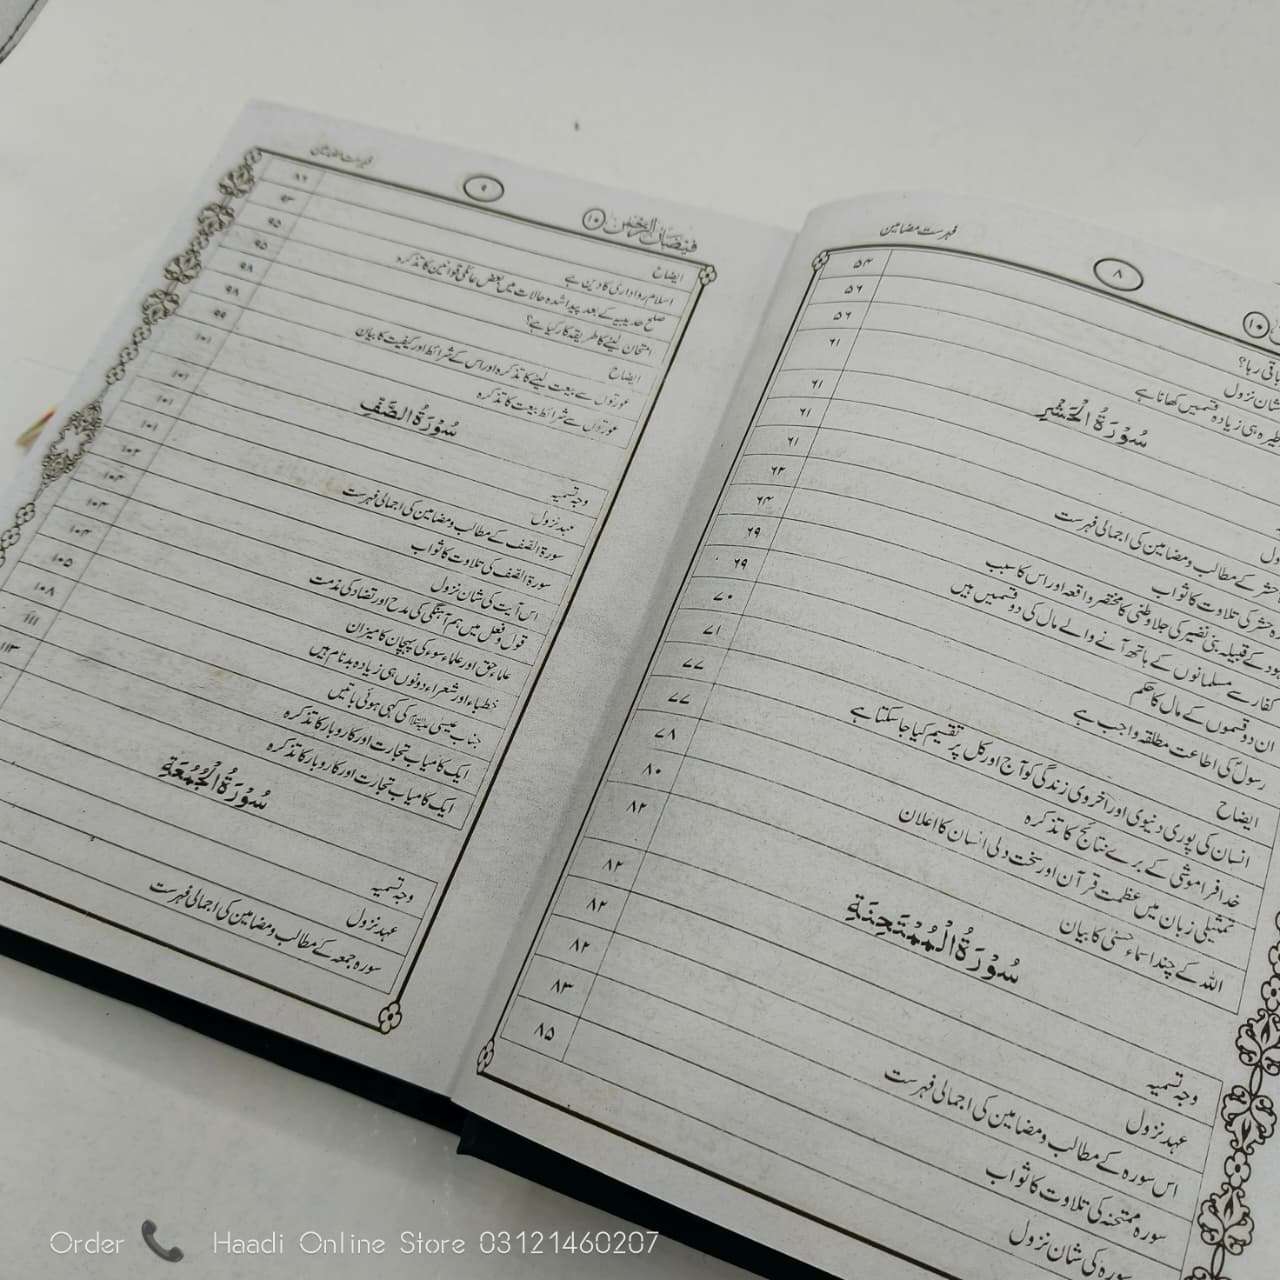 فہرست مضامین
۸
۱۰
۵۴
۵۶
باقی رہا؟
۵۶
شان نزول
۶۱
وطیرہ ہی زیادہ قسمیں کھانا ہے
سُوْرَۃُ الْحَشْرِ
۶۱
۶۱
۶۱
حشر کے مطالب و مضامین کی اجمالی فہرست
۶۲
حشر کی تلاوت کا ثواب
۶۴
یہود کے قبیلہ بنی نضیر کی جلا وطنی کا مختصر واقعہ اور اس کا سبب
۶۹
کفار سے مسلمانوں کے ہاتھ آنے والے مال کی دو قسمیں ہیں
۶۹
ان دو قسموں کے مال کا حکم
۷۰
رسولؐ کی اطاعت مطلقہ واجب ہے
۷۱
ایضاح
۷۷
انسان کی پوری دنیوی اور اخروی زندگی کو آج اور کل پر تقسیم کیا جا سکتا ہے
۷۷
خدا فراموشی کے برے نتائج کا تذکرہ
۷۸
تمثیلی زبان میں عظمت قرآن اور سخت دلی انسان کا اعلان
۸۰
اللہ کے چند اسماء حسنیٰ کا بیان
۸۲
سُوْرَۃُ الْمُمْتَحِنَۃِ
وجہ تسمیہ
۸۲
عہد نزول
۸۲
اس سورہ کے مطالب و مضامین کی اجمالی فہرست
۸۲
سورہ ممتحنہ کی تلاوت کا ثواب
۸۳
سورہ کی شان نزول
۸۵
فیضان الرحمٰن ۱۰
۹
فہرست مضامین
ایضاح
اسلام رواداری کا دین ہے
۹۳
صلح حدیبیہ کے بعد پیدا شدہ حالات میں بعض عائلی قوانین کا تذکرہ
۹۵
امتحان لینے کا طریقہ کار کیا ہے؟
۹۵
ایضاح
۹۸
عورتوں سے بیعت لینے کا تذکرہ اور اس کے شرائط اور کیفیت کا بیان
۹۸
عورتوں سے شرائط بیعت کا تذکرہ
۹۹
سُوْرَۃُ الصَّفِّ
وجہ تسمیہ
۱۰۱
عہد نزول
۱۰۱
سورۃ الصف کے مطالب و مضامین کی اجمالی فہرست
۱۰۱
سورۃ الصف کی تلاوت کا ثواب
۱۰۱
اس آیت کی شان نزول
۱۰۲
قول و فعل میں ہم آہنگی کی مدح اور تضاد کی مذمت
علماء حق اور علماء سوء کی پہچان کا میزان
خطباء اور شعراء دونوں ہی زیادہ بدنام ہیں
۱۰۴
جناب عیسیٰ علیہ السلام کی کہی ہوئی باتیں
۱۰۵
ایک کامیاب تجارت اور کاروبار کا تذکرہ
۱۰۸
ایک کامیاب تجارت اور کاروبار کا تذکرہ
۱۱۱
سُوْرَۃُ الْجُمُعَۃِ
۱۱۳
وجہ تسمیہ
عہد نزول
سورہ جمعہ کے مطالب و مضامین کی اجمالی فہرست
Order Haadi Online Store 03121460207